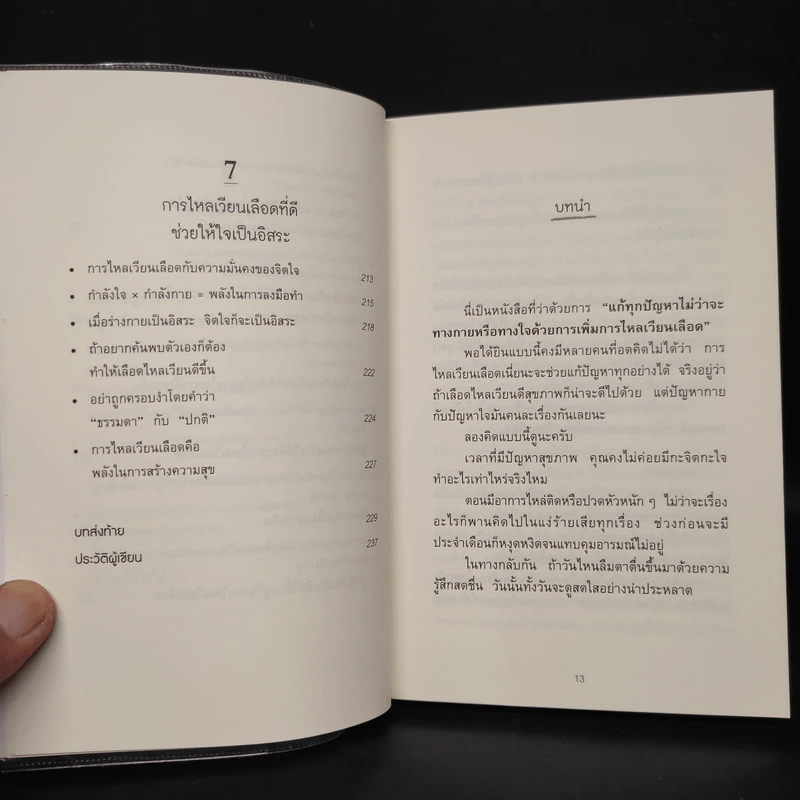 7
การไหลเวียนเลือดที่ดี
ช่วยให้ใจเป็นอิสระ
• การไหลเวียนเลือดกับความมั่นคงของจิตใจ 213
• กำลังใจ × กำลังกาย = พลังในการลงมือทำ 215
• เมื่อร่างกายเป็นอิสระ จิตใจก็จะเป็นอิสระ 218
• ถ้าอยากค้นพบตัวเองก็ต้อง
ทำให้เลือดไหลเวียนดีขึ้น 222
• อย่าถูกครอบงำโดยคำว่า
“ธรรมดา” กับ “ปกติ” 224
• การไหลเวียนเลือดคือ
พลังในการสร้างความสุข 227
บทส่งท้าย 229
ประวัติผู้เขียน 237
บทนำ
นี่เป็นหนังสือที่ว่าด้วยการ “แก้ทุกปัญหาไม่ว่าจะ
ทางกายหรือทางใจด้วยการเพิ่มการไหลเวียนเลือด”
พอได้ยินแบบนี้คงมีหลายคนที่อดคิดไม่ได้ว่า การ
ไหลเวียนเลือดเนี่ยนะจะช่วยแก้ปัญหาทุกอย่างได้ จริงอยู่ว่า
ถ้าเลือดไหลเวียนดีสุขภาพก็น่าจะดีไปด้วย แต่ปัญหากาย
กับปัญหาใจมันคนละเรื่องกันเลยนะ
ลองคิดแบบนี้ดูนะครับ
เวลาที่มีปัญหาสุขภาพ คุณคงไม่ค่อยมีกะจิตกะใจ
ทำอะไรเท่าไหร่จริงไหม
ตอนมีอาการไหล่ติดหรือปวดหัวหนัก ๆ ไม่ว่าจะเรื่อง
อะไรก็พานคิดไปในแง่ร้ายเสียทุกเรื่อง ช่วงก่อนจะมี
ประจำเดือนก็หงุดหงิดจนแทบคุมอารมณ์ไม่อยู่
ในทางกลับกัน ถ้าวันไหนลืมตาตื่นขึ้นมาด้วยความ
รู้สึกสดชื่น วันนั้นทั้งวันจะดูสดใสอย่างน่าประหลาด
13